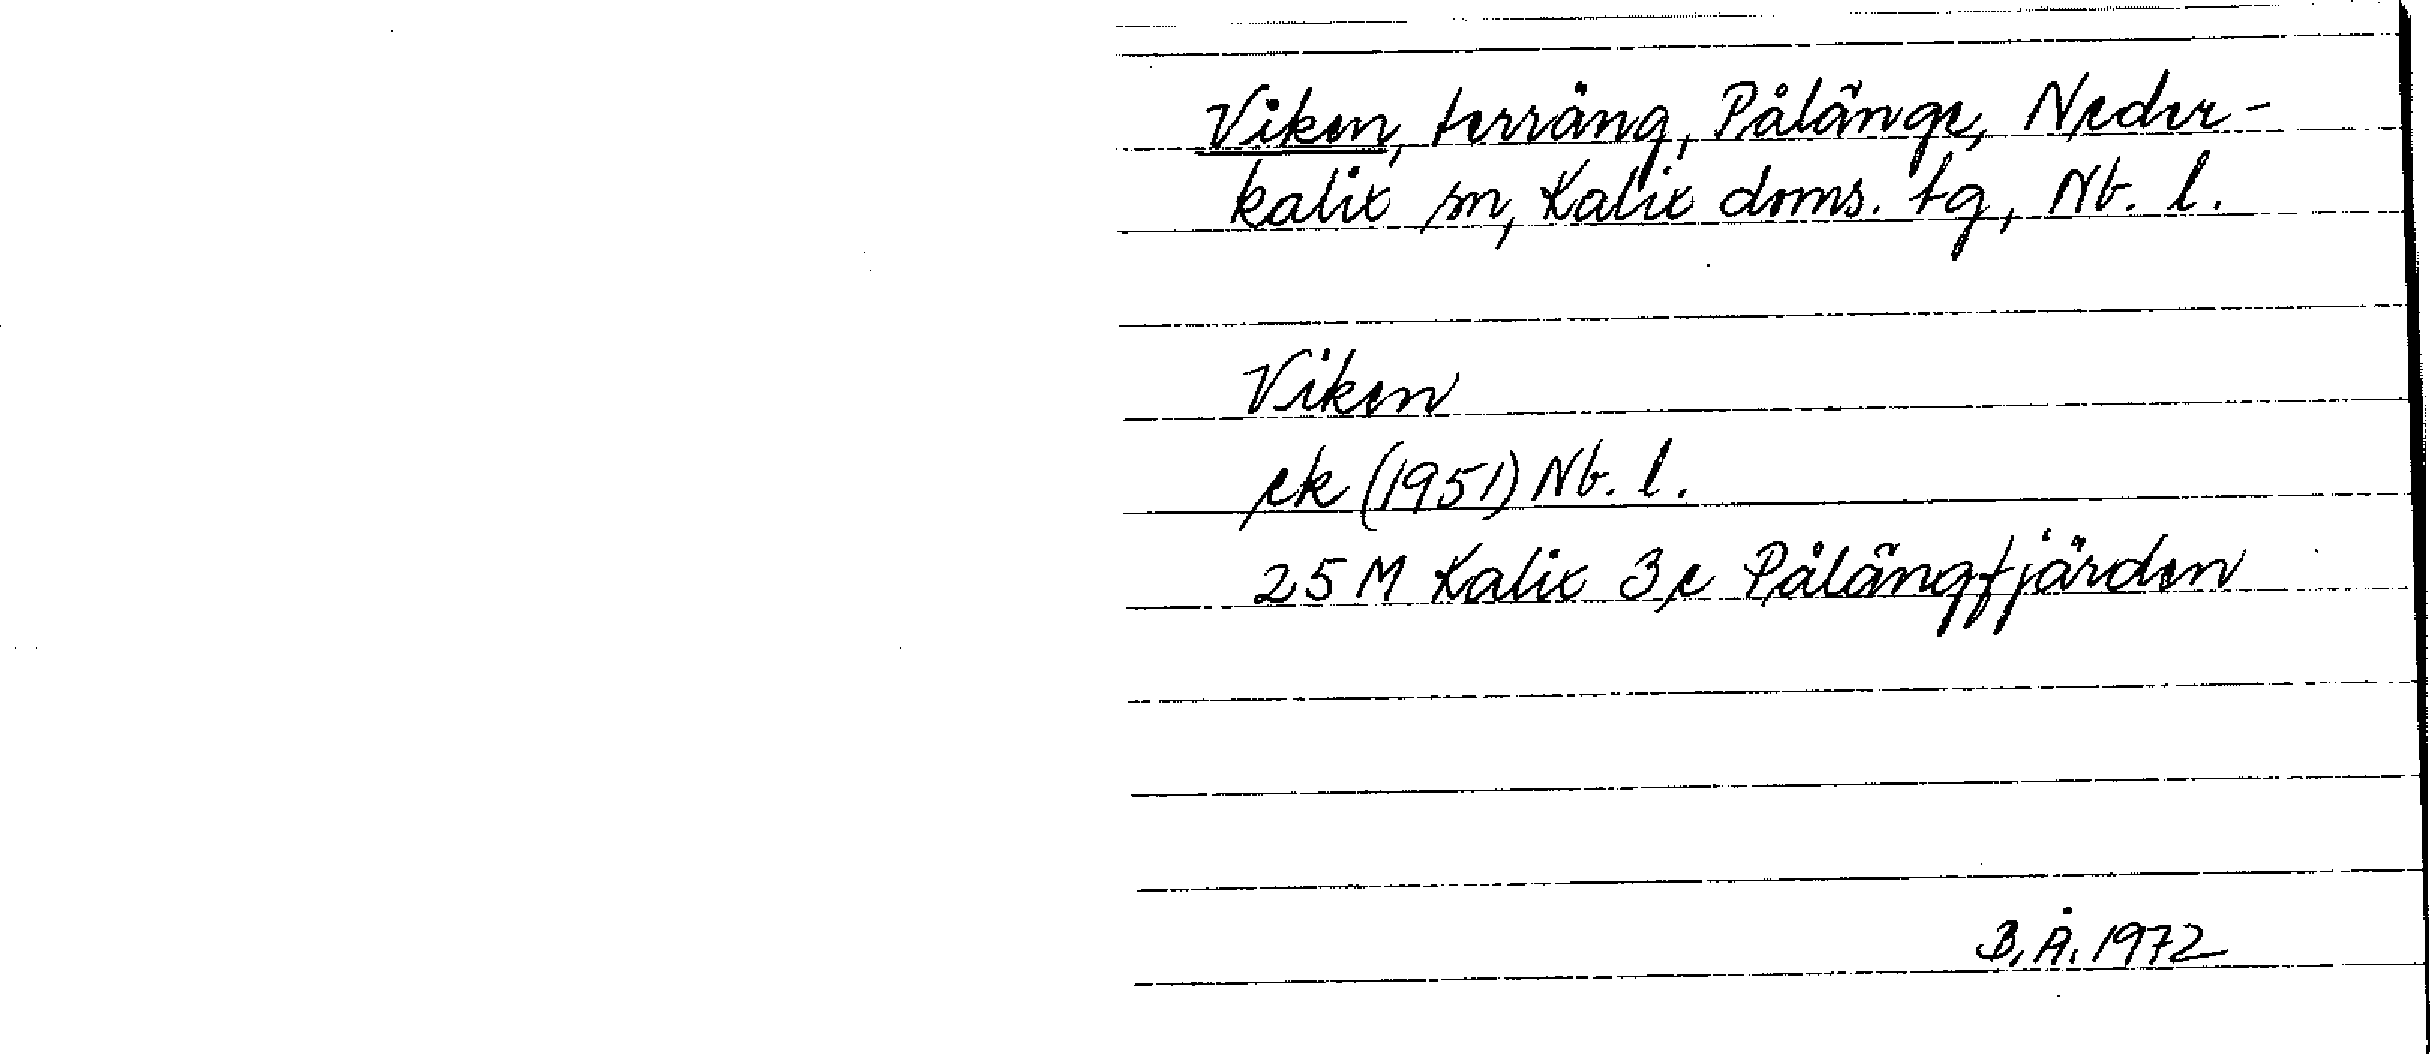 Viken, terräng, Pålänge, Neder-
kalix sn, Kalix doms. tg, Nb. l.
Viken
ek (1951) Nb. l.
25 M Kalix 3 e Pålängfjärden
B. Å. 1972